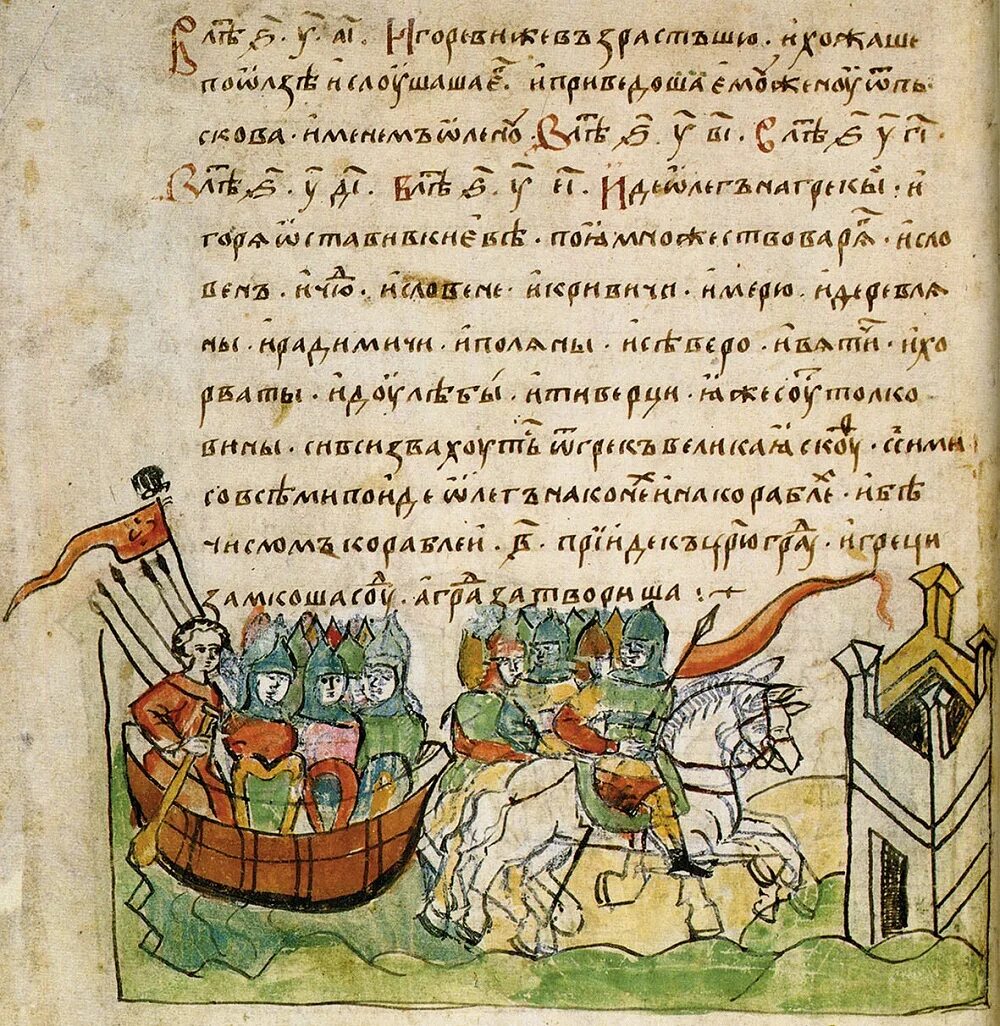 В лѣⷮ ҂ѕ҃ . у҃ . а҃і . Игореви же възрастъшю . и хожаше
по ѿлзѣ и слоушаша еⷢ҇ . и приведоша емоу женоу ѿ пь
скова . именемъ ѿленоу В лѣⷮ ҂ѕ҃ у҃ в҃і . В лѣⷮ ҂ѕ҃ у҃ г҃і .
В лѣⷮ ҂ѕ҃ . у҃ д҃і . В лѣⷮ ҂ѕ҃ . у҃ е҃і . Иде ѿлегъ на грекы . и
горя ѡставив киевѣ . поꙗ множество варяⷢ . и сло
венъ . и чюⷣ . и словене . и кривичи . и мерю . и деревля
ны . и радимичи . и поляны . и сѣверо . и вятичи . и хо
рваты . и доулѣбы . и тиверци . ꙗже соуⷮ толко
вины . си вси звахоуть ѿ грекъ великаꙗ скоуⷴ . с сими
со всѣми поиде ѿлегъ на конеⷯ и на корабле . и бѣ
числомъ кораблеи . в҃ . прїиде къ цр҃ю граⷣ . и греци
замкоша соуⷣ . а граⷣ затвориша :